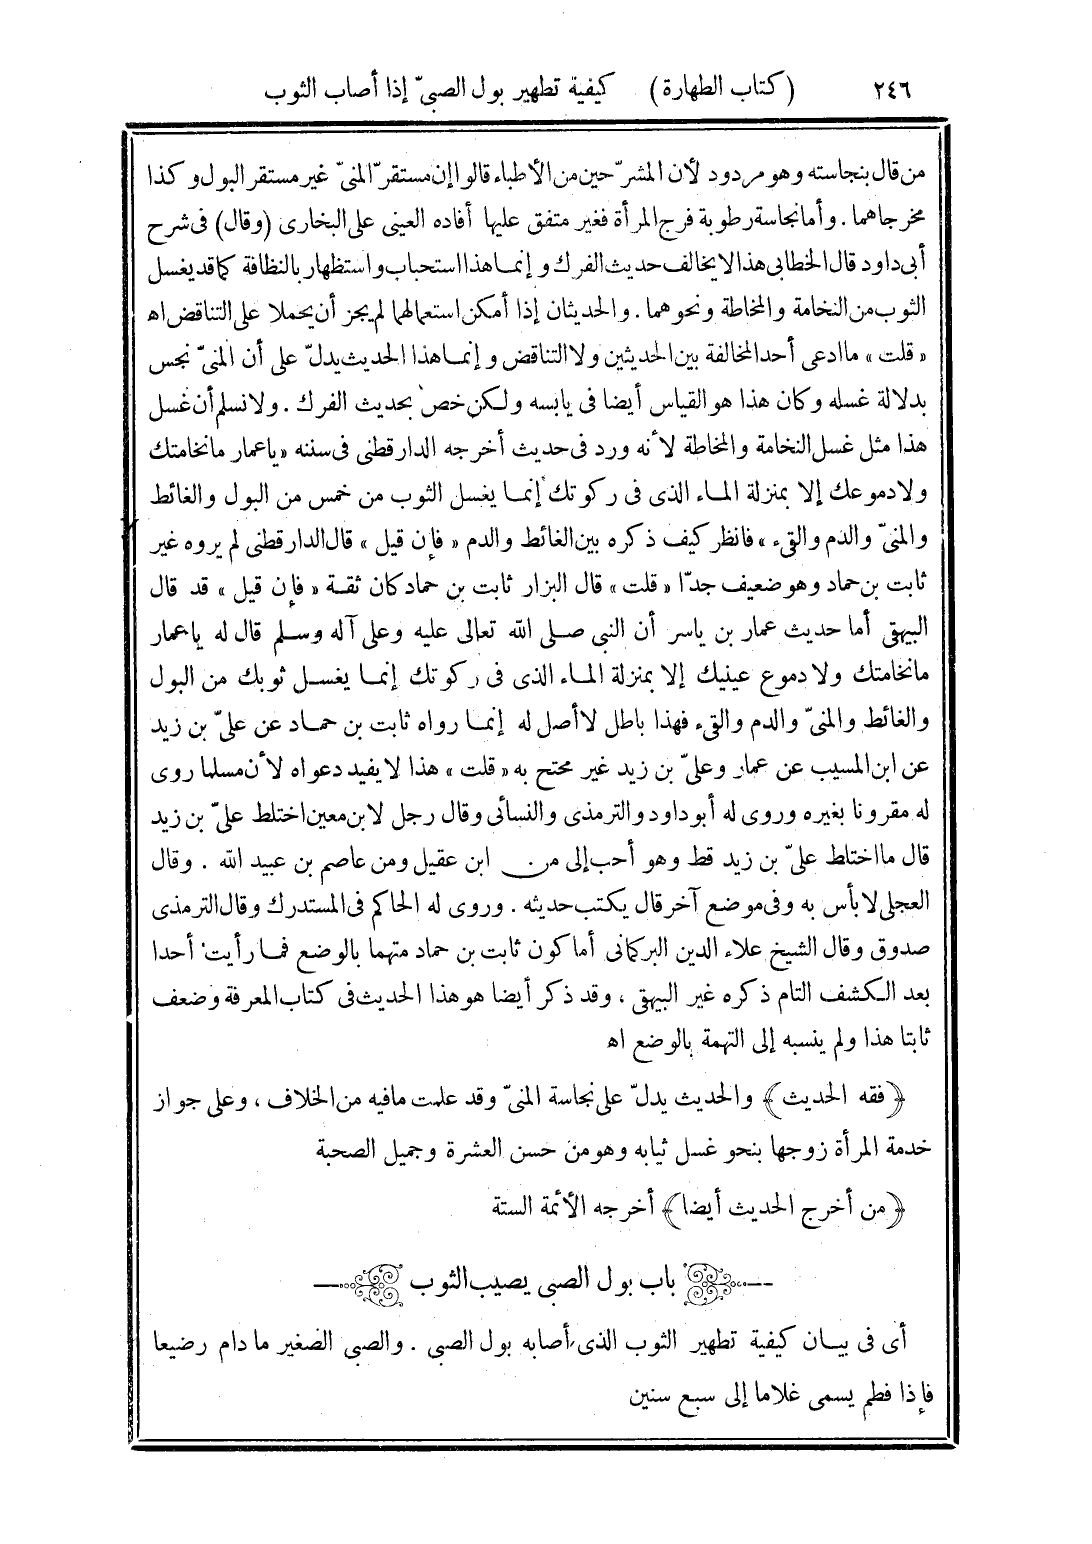 ٢٤٦ (كتاب الطهارة) كيفية تطهير بول الصبىّ إذا أصاب الثوب
من قال بنجاسته وهو مردود لأن المشرّحين من الأطباء قالوا إن مستقرّ المنىّ غير مستقر البول وكذا
مخرجاهما . وأما نجاسة رطوبة فرج المرأة فغير متفق عليها أفاده العينى على البخارى (وقال) فى شرح
أبى داود قال الخطابى هذا لا يخالف حديث الفرك وإنما هذا استحباب واستظهار بالنظافة كما قد يغسل
الثوب من النخامة والمخاطة ونحوهما . والحديثان إذا أمكن استعمالهما لم يجز أن يحملا على التناقض اه
« قلت » ما ادعى أحد المخالفة بين الحديثين ولا التناقض وإنما هذا الحديث يدلّ على أن المنىّ نجس
بدلالة غسله وكان هذا هو القياس أيضا فى يابسه ولكن خص بحديث الفرك . ولا نسلم أن غسل
هذا مثل غسل النخامة والمخاطة لأنه ورد فى حديث أخرجه الدارقطنى فى سننه « ياعمار مانخامتك
ولا دموعك إلا بمنزلة الماء الذى فى ركوتك إنما يغسل الثوب من خمس من البول والغائط
والمنىّ والدم والقىء » فانظر كيف ذكره بين الغائط والدم « فإن قيل » قال الدارقطنى لم يروه غير
ثابت بن حماد وهو ضعيف جدّا « قلت » قال البزار ثابت بن حماد كان ثقة « فإن قيل » قد قال
البيهقى أما حديث عمار بن ياسر أن النبى صلى الله تعالى عليه وعلى آله وسلم قال له ياعمار
مانخامتك ولا دموع عينيك إلا بمنزلة الماء الذى فى ركوتك إنما يغسل ثوبك من البول
والغائط والمنىّ والدم والقىء فهذا باطل لا أصل له إنما رواه ثابت بن حماد عن علىّ بن زيد
عن ابن المسيب عن عمار وعلىّ بن زيد غير محتج به « قلت » هذا لا يفيد دعواه لأن مسلما روى
له مقرونا بغيره وروى له أبو داود والترمذى والنسائى وقال رجل لابن معين اختلط علىّ بن زيد
قال ما اختلط علىّ بن زيد قط وهو أحب إلى من ابن عقيل ومن عاصم بن عبيد الله . وقال
العجلى لا بأس به وفى موضع آخر قال يكتب حديثه . وروى له الحاكم فى المستدرك وقال الترمذى
صدوق وقال الشيخ علاء الدين البركانى أما كون ثابت بن حماد متهما بالوضع فما رأيت أحدا
بعد الكشف التام ذكره غير البيهقى ، وقد ذكر أيضا هو هذا الحديث فى كتاب المعرفة وضعف
ثابتا هذا ولم ينسبه إلى التهمة بالوضع اه
﴿فقه الحديث﴾ والحديث يدلّ على نجاسة المنىّ وقد علمت مافيه من الخلاف ، وعلى جواز
خدمة المرأة زوجها بنحو غسل ثيابه وهو من حسن العشرة وجميل الصحبة
﴿من أخرج الحديث أيضا﴾ أخرجه الأئمة الستة
باب بول الصبى يصيب الثوب
أى فى بيان كيفية تطهير الثوب الذى أصابه بول الصبى . والصبى الصغير ما دام رضيعا
فإذا فطم يسمى غلاما إلى سبع سنين